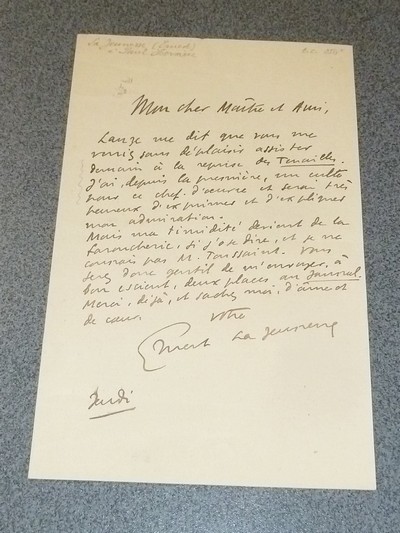 La Jeunesse (Ernest)
à Paul Hervieu
Mon cher Maître et Ami,
Lauze me dit que vous me
verriez sans déplaisir assister
demain à la reprise des Tenailles.
J'ai, depuis la première, un culte
pour ce chef-d'œuvre et serai très
heureux d'exprimer et d'expliquer
mon admiration.
Mais ma timidité devient de la
faroucherie, si j'ose dire, et je ne
connais pas M. Toussaint. Vous
serez donc gentil de m'envoyer, à
bon escient, deux places au Journal.
Merci, déjà, et sachez moi, d'âme et
de cœur,
votre
Ernest La Jeunesse
Jeudi